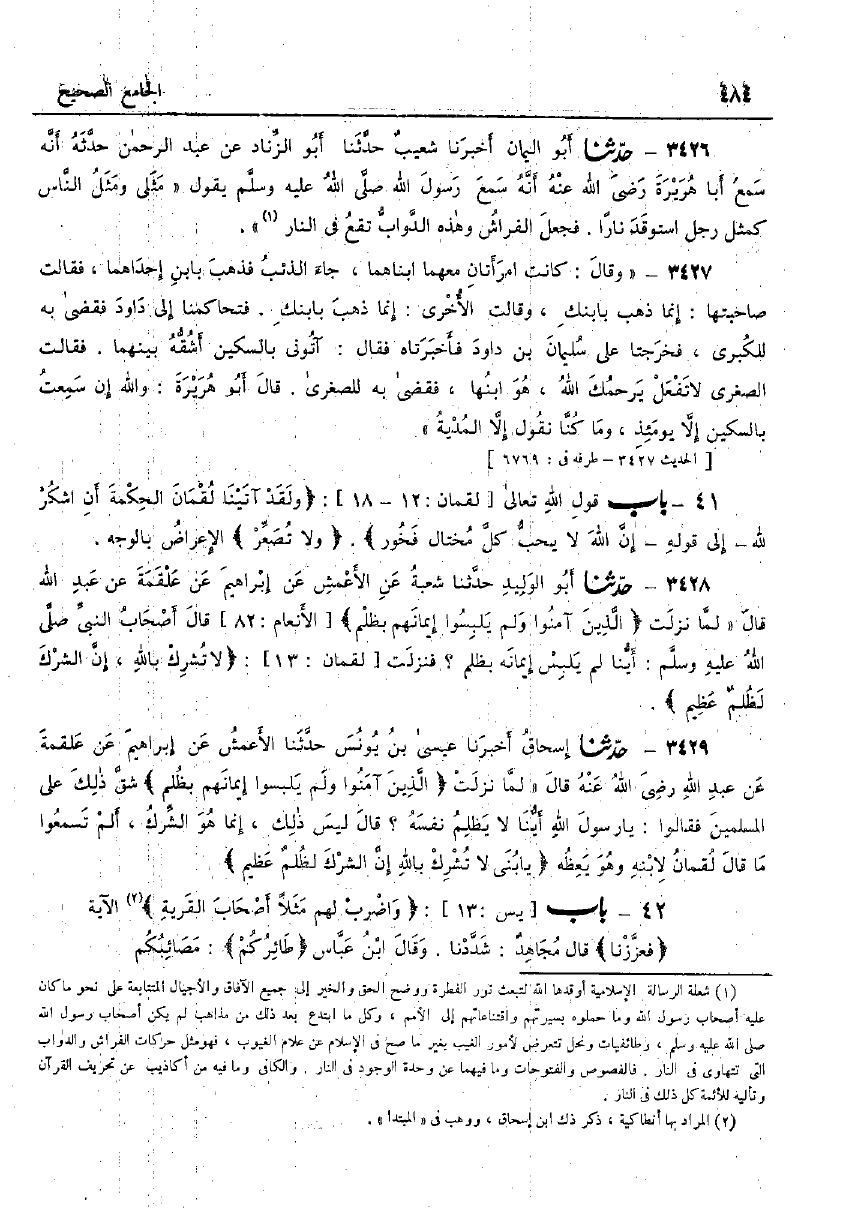 ٤٨٤ الجامع الصحيح
٣٤٢٦ – حدّثنا أَبُو اليمان أخبرَنا شعيبٌ حدَّثَنا أَبُو الزِّناد عن عبد الرحمٰن حدَّثَهُ أنَّه
سَمِعُ أَبا هُرَيْرَةَ رَضىَ الله عنْهُ أَنَّهُ سَمعَ رَسولَ الله صلَّى اللهُ عليه وسلَّم يقول « مَثَلى ومَثَلُ النَّاس
كمثل رجل استوقَدَ نارًا . فجعلَ الفراشُ وهٰذه الدَّوابُّ تقعُ فى النار (١) » .
٣٤٢٧ – « وقالَ : كانت امرَأتانِ معهما ابناهما ، جاءَ الذئبُ فذهبَ بابنِ إحداهما ، فقالت
صاحبتها : إنما ذهب بابنك ، وقالت الأُخْرى : إنما ذهبَ بابنك . فتحاكمتا إلى داودَ فقضىٰ به
للكُبرى ، فخرَجتا على سُليمانَ بن داودَ فأَخبَرَتاه فقال : آتُونى بالسكين أَشُقُّهُ بينهما . فقالت
الصغرى لاتَفْعَلْ يَرحمُكَ اللهُ ، هُوَ ابنُها ، فقضىٰ به للصغرىٰ . قالَ أَبُو هُرَيْرَةَ : والله إن سَمِعتُ
بالسكين إلَّا يومئِذٍ ، ومَا كُنَّا نقُول إلَّا المُدْيةُ »
[ الحديث ٣٤٢٧ – طرفه فى : ٦٧٦٩ ]
٤١ – باب قولِ اللهِ تعالىٰ [ لقمان : ١٢ – ١٨ ] : ﴿ ولَقَدْ آتَيْنَا لُقْمَانَ الحِكْمَةَ أَنِ اشكُرْ
لله – إلى قولهِ – إنَّ اللهَ لا يحبُّ كلَّ مُختال فَخُور ﴾ . ﴿ ولا تُصَعِّرْ ﴾ الإعراضُ بالوجه .
٣٤٢٨ – حدّثنا أَبُو الوَلِيدِ حدَّثَنا شعبةُ عَنِ الأَعْمشِ عَن إبْراهيمَ عَن عَلْقمَةَ عن عَبدِ الله
قالَ « لمَّا نزلَت ﴿ الَّذِينَ آمَنُوا وَلم يَلبِسُوا إيمَانَهم بظلْمٍ ﴾ [ الأنعام : ٨٢ ] قالَ أَصْحَابُ النبىِّ صلَّى
اللهُ عليهِ وسلَّم : أَيُّنا لم يَلبِسْ إيمانَه بظلم ؟ فنزلَت [ لقمان : ١٣ ] : ﴿ لاتُشرِكْ بالله ، إنَّ الشركَ
لَظُلمٌ عَظِيم ﴾ .
٣٤٢٩ – حدّثنا إسحاقُ أخبرَنا عيسىٰ بنُ يُونُسَ حدَّثَنا الأعمشُ عَن إبراهيمَ عَن علقمةَ
عَن عبدِ الله رضِىَ اللهُ عَنْهُ قالَ « لمَّا نزلَتْ ﴿ الَّذِينَ آمَنُوا ولَم يَلبِسوا إيمانَهم بظُلمٍ ﴾ شقَّ ذٰلِكَ على
المسلمينَ فقالوا : يارسولَ اللهِ أَيُّنا لا يَظلِمُ نفسَهُ ؟ قالَ ليسَ ذٰلِك ، إنما هُوَ الشِّركُ ، أَلمْ تَسمعُوا
مَا قالَ لُقمانُ لِابْنهِ وهُوَ يَعِظُه ﴿ يابُنَى لا تُشْرِكْ باللهِ إنَّ الشركَ لظُلمٌ عَظيم ﴾
٤٢ – باب [ يس : ١٣ ] : ﴿ وَاضْرِبْ لهم مَثَلًا أَصْحَابَ القَرية ﴾(٢) الآية
﴿ فعزَّزْنا ﴾ قال مُجَاهِدٌ : شَدَّدْنا . وَقَالَ ابْنُ عَبَّاس ﴿ طَائِرُكُمْ ﴾ : مَصَائِبُكُم
(١) شعلة الرسالة الإسلامية أوقدها الله لتبعث نور الفطرة ووضح الحق والخير إلى جميع الآفاق والأجيال المتتابعة على نحو ماكان
عليه أصحاب رسول الله وما حملوه بسيرتهم وأقتناعاتهم إلى الأمم ، وكل ما ابتدع بعد ذلك من مذاهب لم يكن أصحاب رسول الله
صلى الله عليه وسلم ، وطائفيات ونحل تتعرض لأمور الغيب بغير ما صح فى الإسلام عن علام الغيوب ، فهومثل حركات الفراش والدواب
التى تتهاوى فى النار . فالفصوص والفتوحات وما فيهما عن وحدة الوجود فى النار . والكافى وما فيه من أكاذيب عن تحريف القرآن
وتأليه للأئمة كل ذلك فى النار .
(٢) المراد بها أنطاكية ، ذكر ذك ابن إسحاق ، ووهب فى « المبتدأ » .